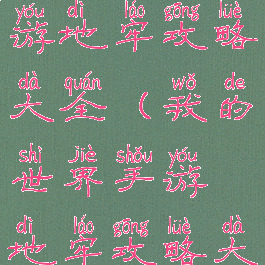 yóu dì láo gōng lüè
游地牢攻略
dà quán wǒ de
大全（我的
shì jiè shǒu yóu
世界手游
dì láo gōng lüè dà
地牢攻略大